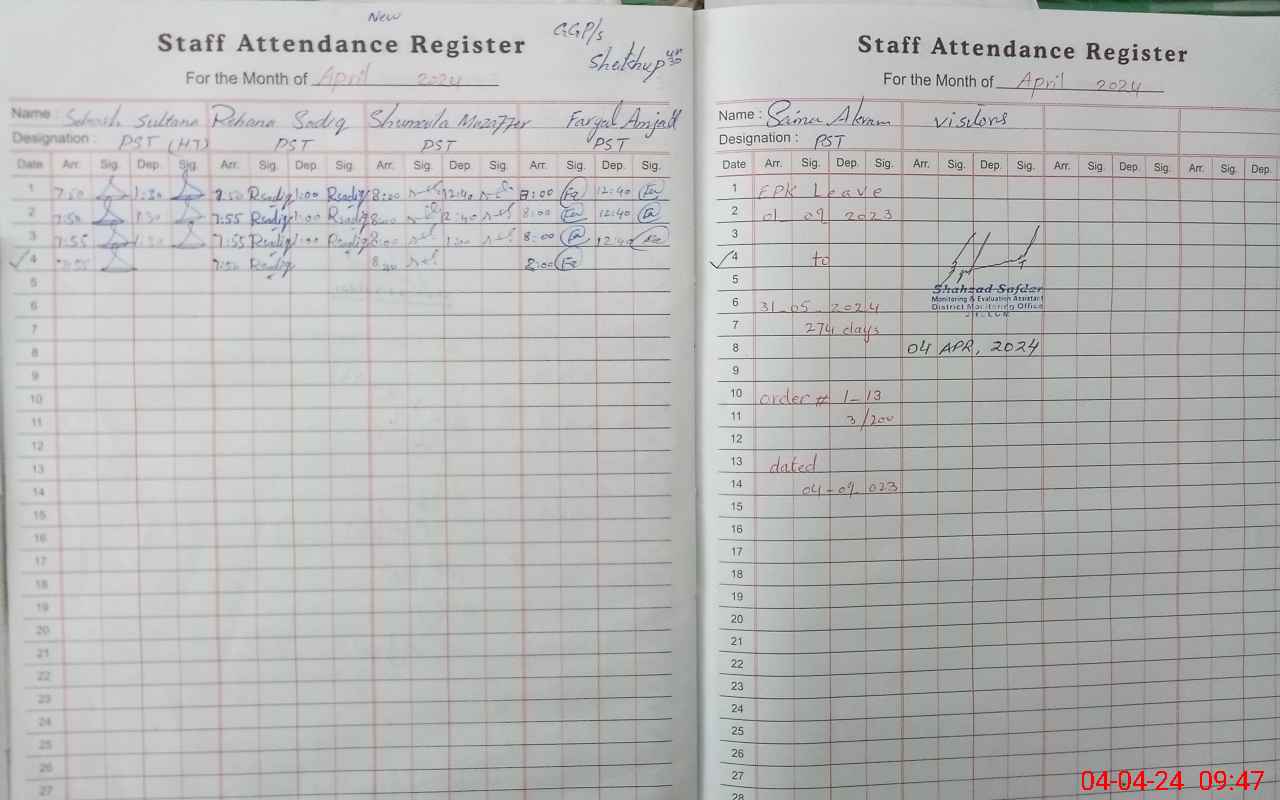 New
Staff Attendance Register
GGP/s
For the Month of April 2024
Name : Sultana Rehana Sadiq Shumaila Muzaffer Faryal Amjad
Designation : PST (HT) PST PST PST
Date Arr. Sig. Dep. Sig. Arr. Sig. Dep. Sig. Arr. Sig. Dep. Sig. Arr. Sig. Dep. Sig.
1 7:50 1:30 7:50 Rsadiq 1:00 Rsadiq 8:00 12:40 8:00 12:40
2 7:50 1:30 7:55 Rsadiq 1:00 Rsadiq 8:00 12:40 8:00 12:40
3 7:55 1:30 7:55 Rsadiq 1:00 Rsadiq 8:00 8:00 12:40
4 7:55 7:50 Rsadiq 8:00 8:00
5
6
7
8
9
10
11
12
13
14
15
16
17
18
19
20
21
22
23
24
25
26
27
Staff Attendance Register
For the Month of April 2024
Name : Saima Akram visitors
Designation : PST
Date Arr. Sig. Dep. Sig. Arr. Sig. Dep. Sig. Arr. Sig. Dep. Sig. Arr. Sig. Dep.
1 EPK Leave
2 01_09_2023
3
4 to
5
Shahzad Safdar
Monitoring & Evaluation Assistant
6 31_05_2024 District Monitoring Office
JHELUM
7 274 days
8 04 APR, 2024
9
10 order # 1_13
11 3/200
12
13 dated
14 04-09_023
15
16
17
18
19
20
21
22
23
24
25
26
27
28
04-04-24 09:47